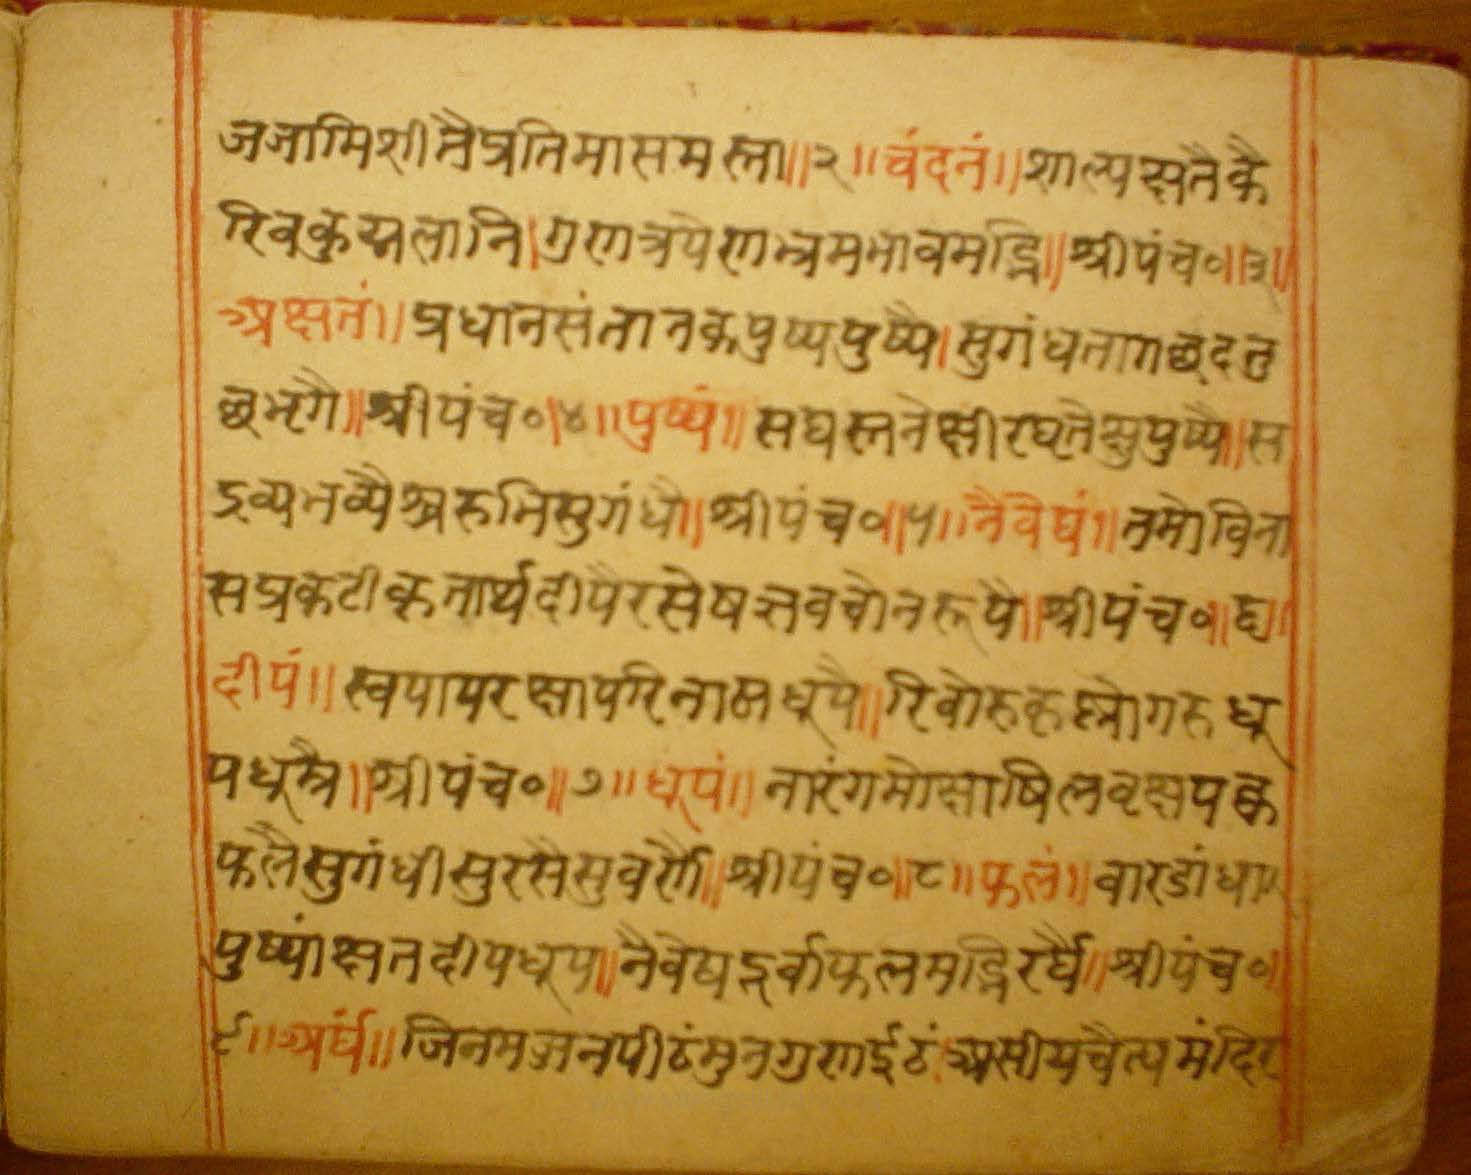 जजाग्मिशीतैप्रतिमासमस्ता॥२॥चंदनं॥शाल्पक्षतैकै
रिवकुय्मलानि।गुणत्रयेणभ्त्रमभावमद्भि॥श्रीपंच०॥३॥
अक्षतं॥प्रधानसंतानकपुष्पपुष्पै।सुगंधतागछदतु
छभृगै॥श्रीपंच०॥४॥पुष्पं॥सघस्तनेक्षीरघृतैक्षुपुष्पै॥स
द्रव्यभव्यैश्चरुभिसुगंधै॥श्रीपंच०॥५॥नैवेद्यं॥तमोविना
सप्रकटीकृतार्थदीपैरसेषस्तवचोनरूपै॥श्रीपंच०॥६॥
दीपं॥स्वपापरक्षापरिनासधूपै॥रिवोरुकृष्नोगरुधू
पधूम्रै॥श्रीपंच०॥७॥धूपं॥नारंगमोसाषिलवृक्षपक्व
फलैसुगंधीसुरसैसुवर्णै॥श्रीपंच०॥८॥फलं॥वारडांधा
पुष्पांक्षतदीपधूप॥नैवेद्यदूर्वाफलमद्भिरर्घै॥श्रीपंच०॥
९॥अर्घं॥जिनमजनपीठंमुनगुणईठं।असीयचैत्यमंदिर